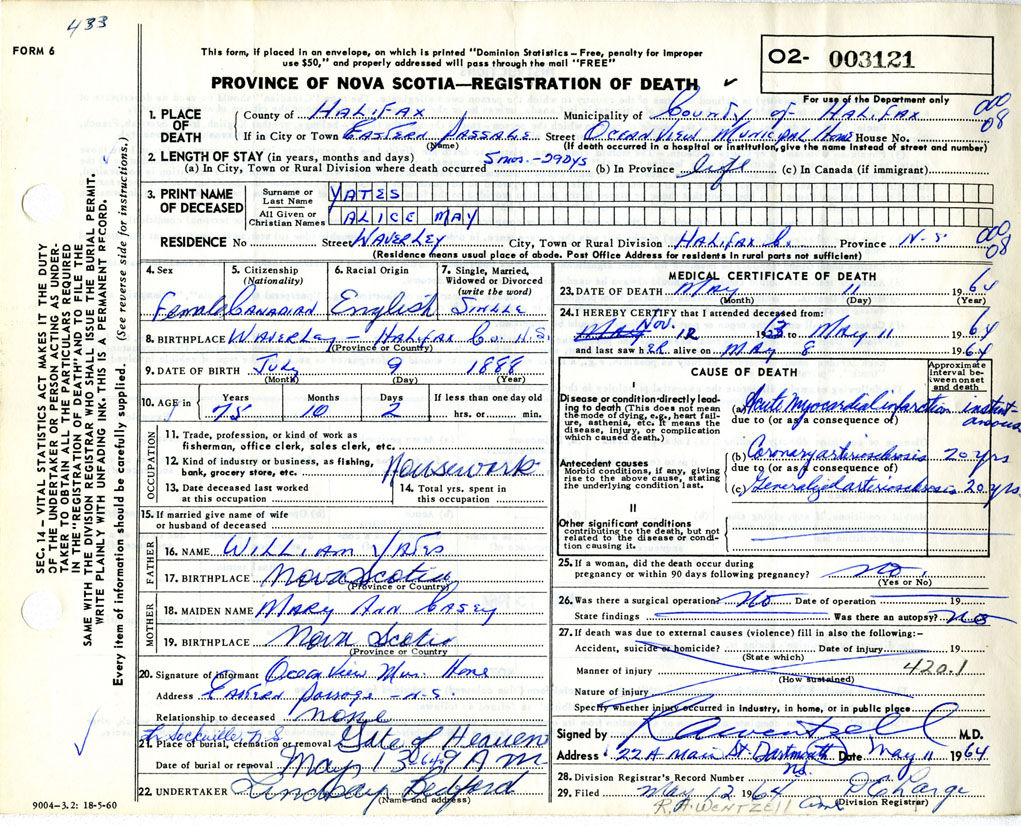 433
FORM 6
This form, if placed in an envelope, on which is printed "Dominion Statistics – Free, penalty for improper
use $50," and properly addressed will pass through the mail "FREE"
PROVINCE OF NOVA SCOTIA—REGISTRATION OF DEATH
02- 003121
For use of the Department only
000
08
1. PLACE OF DEATH
County of HALIFAX Municipality of County of HALIFAX
If in City or Town EASTERN PASSAGE Street OCEAN VIEW MUNICIPAL Home House No.
(Name) (If death occurred in a hospital or institution, give the name instead of street and number)
2. LENGTH OF STAY (in years, months and days) 5 mos. - 29 Dys
(a) In City, Town or Rural Division where death occurred (b) In Province Life (c) In Canada (if immigrant)
3. PRINT NAME OF DECEASED
Surname or Last Name YATES
All Given or Christian Names ALICE MAY
RESIDENCE No Street WAVERLEY City, Town or Rural Division HALIFAX Co Province N.S. 000
08
(Residence means usual place of abode. Post Office Address for residents in rural parts not sufficient)
4. Sex Female
5. Citizenship (Nationality) CANADIAN
6. Racial Origin English
7. Single, Married, Widowed or Divorced (write the word) SINGLE
8. BIRTHPLACE WAVERLEY – HALIFAX Co. N.S.
(Province or Country)
9. DATE OF BIRTH July 9 1888
(Month) (Day) (Year)
10. AGE in Years 75 Months 10 Days 2 If less than one day old hrs. or min.
OCCUPATION
11. Trade, profession, or kind of work as fisherman, office clerk, sales clerk, etc.
12. Kind of industry or business, as fishing, bank, grocery store, etc. Housework
13. Date deceased last worked at this occupation
14. Total yrs. spent in this occupation
15. If married give name of wife or husband of deceased
FATHER
16. NAME WILLIAM YATES
17. BIRTHPLACE Nova Scotia
(Province or Country)
MOTHER
18. MAIDEN NAME MARY ANN CASEY
19. BIRTHPLACE Nova Scotia
(Province or Country)
20. Signature of informant Ocean View Mun. Home
Address Eastern Passage – N.S.
Relationship to deceased none
Sackville, N.S
21. Place of burial, cremation or removal Gate of Heaven
Date of burial or removal May 13 64 9 AM
22. UNDERTAKER Lindsay Bedford
(Name and address)
9004—3.2: 18-5-60
MEDICAL CERTIFICATE OF DEATH
23. DATE OF DEATH May 11 1964
(Month) (Day) (Year)
24. I HEREBY CERTIFY that I attended deceased from:
May Nov. 12 1963 to May 11 1964
and last saw her alive on May 8 1964
CAUSE OF DEATH
Approximate interval between onset and death
I
Disease or condition directly leading to death (This does not mean the mode of dying, e.g., heart failure, asthenia, etc. It means the disease, injury, or complication which caused death.)
(a) Acute myocardial infarction instantaneous
due to (or as a consequence of)
Antecedent causes
Morbid conditions, if any, giving rise to the above cause, stating the underlying condition last.
(b) Coronary arteriosclerosis 20 yrs
due to (or as a consequence of)
(c) Generalized arteriosclerosis 20 yrs
II
Other significant conditions
contributing to the death, but not related to the disease or condition causing it.
25. If a woman, did the death occur during pregnancy or within 90 days following pregnancy? No.
(Yes or No)
26. Was there a surgical operation? No Date of operation 19
State findings Was there an autopsy? No
27. If death was due to external causes (violence) fill in also the following:–
Accident, suicide or homicide? Date of injury 19
(State which)
Manner of injury 420.1
(How sustained)
Nature of injury
Specify whether injury occurred in industry, in home, or in public place
Signed by RAWentzell M.D.
Address 22A Main St. Dartmouth NS Date May 11 1964
28. Division Registrar's Record Number
29. Filed May 12 1964
(Division Registrar)
R. A. WENTZELL
SEC. 14 – VITAL STATISTICS ACT MAKES IT THE DUTY
OF THE UNDERTAKER OR PERSON ACTING AS UNDER-
TAKER TO OBTAIN ALL THE PARTICULARS REQUIRED
IN THE "REGISTRATION OF DEATH" AND TO FILE THE
SAME WITH THE DIVISION REGISTRAR WHO SHALL ISSUE THE BURIAL PERMIT.
WRITE PLAINLY WITH UNFADING INK. THIS IS A PERMANENT RECORD.
Every item of information should be carefully supplied. (See reverse side for instructions.)